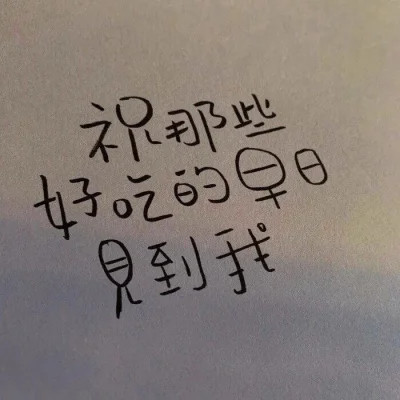 祝那些
好吃的早日
见到我